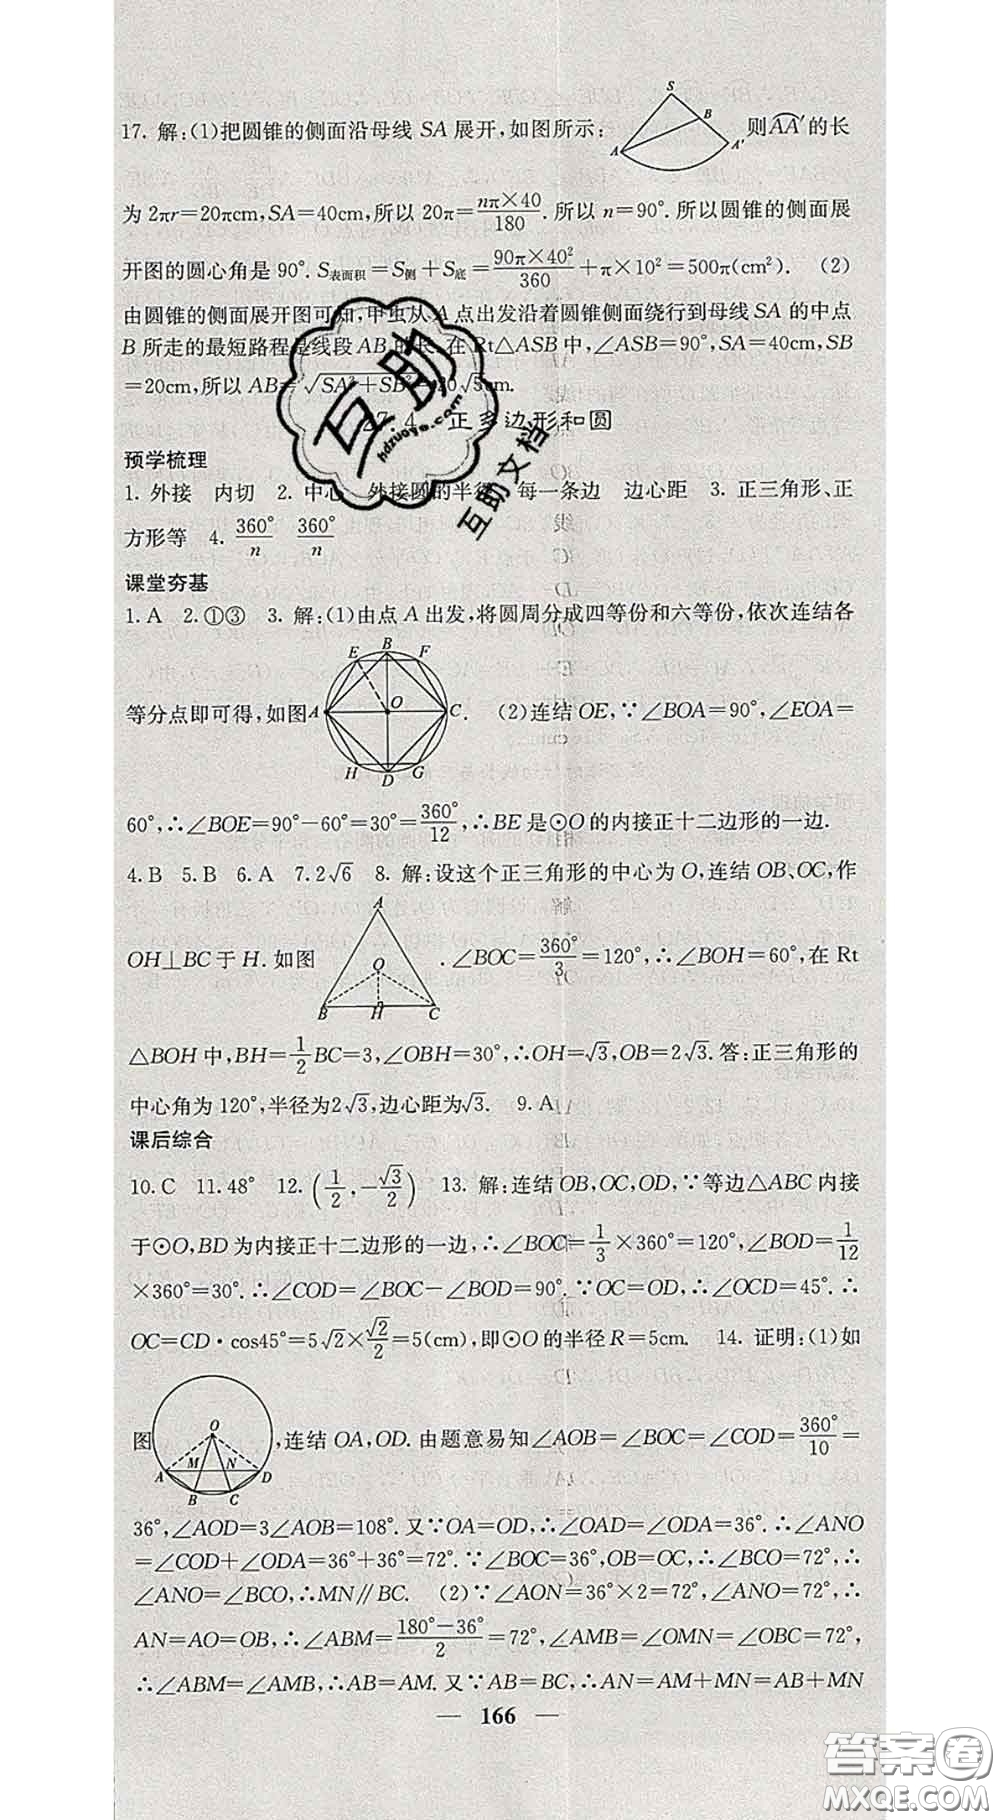 17. 解:(1)把圆锥的侧面沿母线 SA 展开,如图所示: S B A A′ 则AA′的长
为 2πr=20πcm,SA=40cm,所以 20π=nπ×40/180.所以 n=90°.所以圆锥的侧面展
开图的圆心角是 90°. S表面积=S侧+S底=90π×40²/360+π×10²=500π(cm²). (2)
由圆锥的侧面展开图可知,甲虫从 A 点出发沿着圆锥侧面绕行到母线 SA 的中点
B 所走的最短路程是线段 AB 的长.在 Rt△ASB 中,∠ASB=90°,SA=40cm,SB
=20cm,所以 AB=√SA²+SB²=20√5cm.
27.4 正多边形和圆
预学梳理
1. 外接 内切 2. 中心 外接圆的半径 每一条边 边心距 3. 正三角形、正
方形等 4. 360°/n 360°/n
课堂夯基
1. A 2.①③ 3. 解:(1)由点 A 出发,将圆周分成四等份和六等份,依次连结各
等分点即可得,如图 E B F A O C H D G . (2)连结OE,∵∠BOA=90°,∠EOA=
60°,∴∠BOE=90°-60°=30°=360°/12,∴BE 是⊙O的内接正十二边形的一边.
4. B 5. B 6. A 7. 2√6 8. 解:设这个正三角形的中心为 O,连结 OB、OC,作
OH⊥BC 于 H. 如图 A O B H C .∠BOC=360°/3=120°,∴∠BOH=60°,在 Rt
△BOH 中,BH=1/2BC=3,∠OBH=30°,∴OH=√3,OB=2√3.答:正三角形的
中心角为 120°,半径为2√3,边心距为√3. 9. A
课后综合
10. C 11. 48° 12. (1/2,-√3/2) 13. 解:连结OB,OC,OD,∵等边△ABC 内接
于⊙O,BD 为内接正十二边形的一边,∴∠BOC=1/3×360°=120°,∠BOD=1/12
×360°=30°.∴∠COD=∠BOC-∠BOD=90°.∵OC=OD,∴∠OCD=45°.∴
OC=CD·cos45°=5√2×√2/2=5(cm),即⊙O 的半径 R=5cm. 14. 证明:(1)如
图 O M N A D B C ,连结 OA,OD. 由题意易知∠AOB=∠BOC=∠COD=360°/10=
36°,∠AOD=3∠AOB=108°.又∵OA=OD,∴∠OAD=∠ODA=36°.∴∠ANO
=∠COD+∠ODA=36°+36°=72°.∵∠BOC=36°,OB=OC,∴∠BCO=72°,∴
∠ANO=∠BCO,∴MN∥BC. (2)∵∠AON=36°×2=72°,∠ANO=72°,∴
AN=AO=OB,∴∠ABM=180°-36°/2=72°,∠AMB=∠OMN=∠OBC=72°,
∴∠ABM=∠AMB,∴AB=AM.又∵AB=BC,∴AN=AM+MN=AB+MN
— 166 —
互助
hdzuoye.com
互助文档
答案圈
MXQE.COM